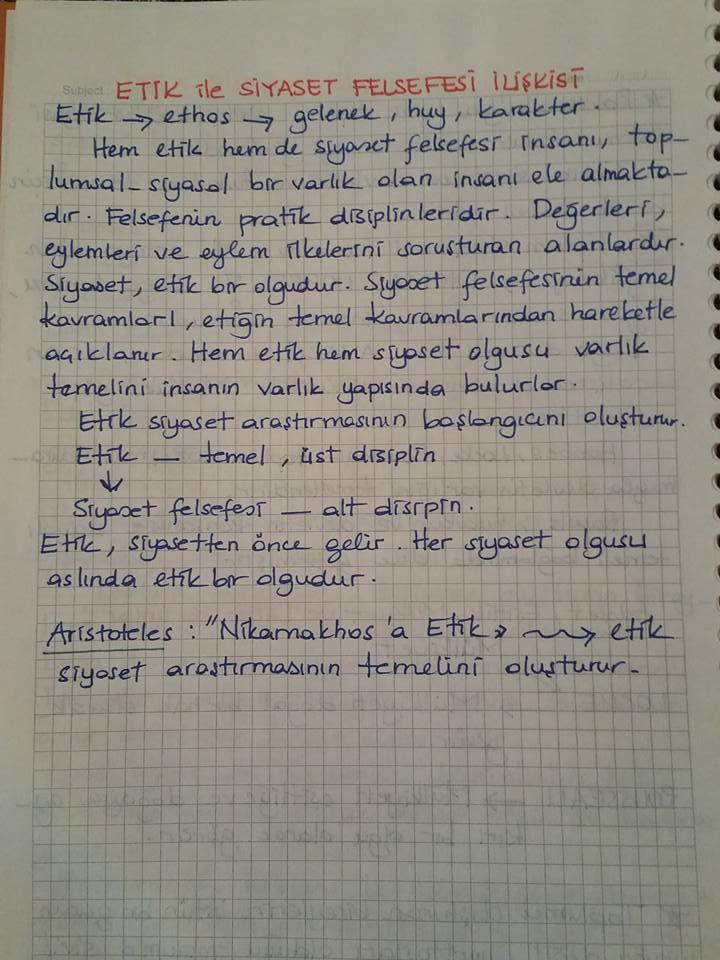 Subject:
ETİK ile SİYASET FELSEFESİ İLİŞKİSİ
Etik → ethos → gelenek, huy, karakter.
Hem etik hem de siyaset felsefesi insanı, top-
lumsal-siyasal bir varlık olan insanı ele almakta-
dır. Felsefenin pratik disiplinleridir. Değerleri,
eylemleri ve eylem ilkelerini soruşturan alanlardır.
Siyaset, etik bir olgudur. Siyaset felsefesinin temel
kavramları, etiğin temel kavramlarından hareketle
açıklanır. Hem etik hem siyaset olgusu varlık
temelini insanın varlık yapısında bulurlar.
Etik siyaset araştırmasının başlangıcını oluşturur.
Etik — temel, üst disiplin
↓
Siyaset felsefesi — alt disipin.
Etik, siyasetten önce gelir. Her siyaset olgusu
aslında etik bir olgudur.
Aristoteles : "Nikamakhos'a Etik» → etik
siyaset araştırmasının temelini oluşturur.